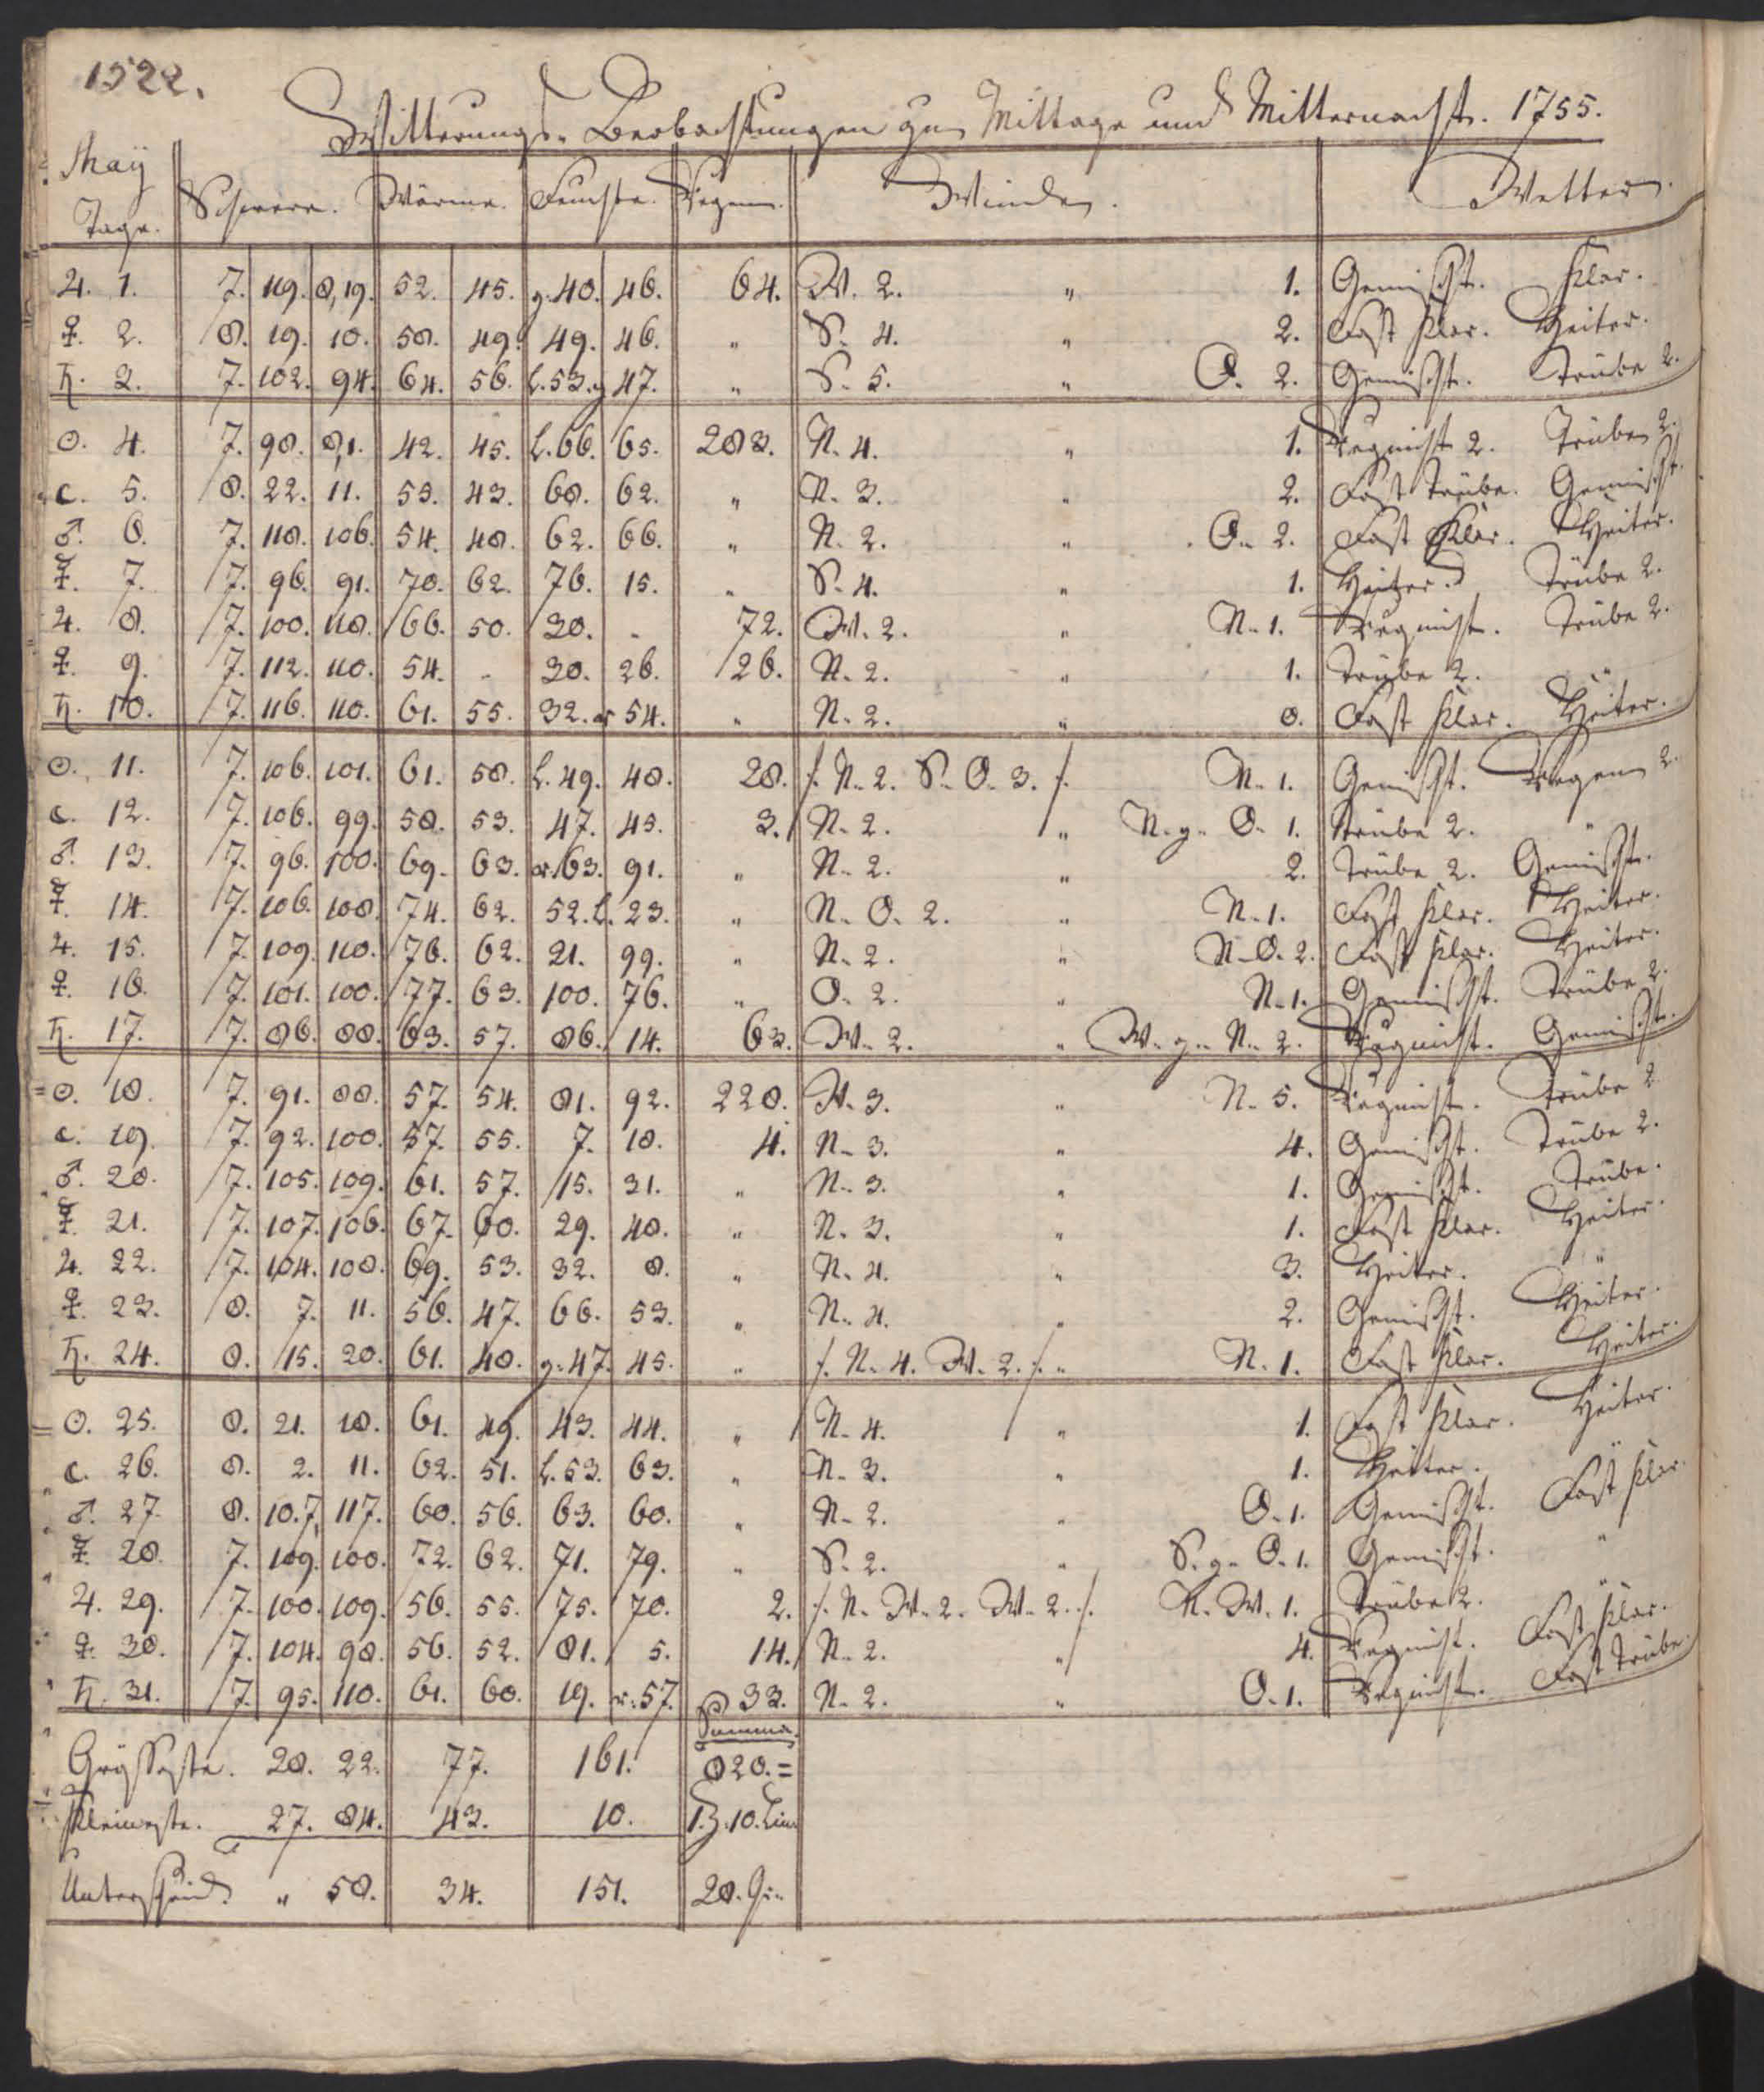 1522.
Witterungs-Beobachtungen zu Mittage und Mitternacht. 1755.
May
Tage. Schwere. Wärme. Feuchte. Regen. Winde. Wetter.
♃. 1. 7. 119. 8,19. 52. 45. g.40. 46. 64. W. 2. „ 1. Gemischt. Klar.
♀. 2. 8. 19. 10. 58. 49. 49. 46. „ S. 4. „ 2. Fast klar. Heiter.
♄. 3. 7. 102. 94. 64. 56. L.53. g 47. „ S. 5. „ O. 2. Gemischt. Trübe 2.
☉. 4. 7. 98. 8,1. 42. 45. L.66. 65. 283. N. 4. „ 1. Regnicht 2. Trübe 2.
☾. 5. 8. 22. 11. 55. 43. 68. 62. „ N. 3. „ 2. Fast trübe. Gemischt.
♂. 6. 7. 118. 106. 54. 48. 62. 66. „ N. 2. „ O. 2. Fast Klar. Heiter.
☿. 7. 7. 96. 91. 70. 62. 76. 15. „ S. 4. „ 1. Heiter. Trübe 2.
♃. 8. 7. 100. 118. 66. 50. 30. - 72. W. 2. „ N. 1. Regnicht. Trübe 2.
♀. 9. 7. 112. 110. 54. - 30. 26. 26. N. 2. „ 1. Trübe 2. „
♄. 10. 7. 116. 110. 61. 55. 32. r 54. „ N. 2. „ 0. Fast klar. Heiter.
☉. 11. 7. 106. 101. 61. 58. L.49. 48. 28. /. N. 2. S. O. 3. /. N. 1. Gemischt. Regen 2.
☾. 12. 7. 106. 99. 58. 53. 47. 45. 3. N. 2. „ N. g. O. 1. Trübe 2. „
♂. 13. 7. 96. 100. 69. 63. r.63. 91. „ N. 2. „ 2. Trübe 2. Gemischt.
☿. 14. 7. 106. 108. 74. 62. 52. L. 23. „ N. O. 2. „ N. 1. Fast klar. Heiter.
♃. 15. 7. 109. 110. 76. 62. 21. 99. „ N. 2. „ N. O. 2. Fast klar. Heiter.
♀. 16. 7. 101. 100. 77. 63. 100. 76. „ O. 2. „ N. 1. Gemischt. Trübe 2.
♄. 17. 7. 86. 88. 63. 57. 86. 14. 63. W. 2. „ W. g. N. 2. Regnicht. Gemischt.
☉. 18. 7. 91. 88. 57. 54. 81. 92. 228. W. 3. „ N. 5. Regnicht. Trübe 2.
☾. 19. 7. 92. 100. 57. 55. 7. 10. 4. N. 3. „ 4. Gemischt. Trübe 2.
♂. 20. 7. 105. 109. 61. 57. 15. 31. „ N. 3. „ 1. Gemischt. Trübe.
☿. 21. 7. 107. 106. 67. 60. 29. 40. „ N. 3. „ 1. Fast klar. Heiter.
♃. 22. 7. 104. 108. 69. 53. 32. 8. „ N. 4. „ 3. Heiter. „
♀. 23. 8. 7. 11. 56. 47. 66. 53. „ N. 4. „ 2. Gemischt. Heiter.
♄. 24. 8. 15. 20. 61. 48. g.47. 45. „ /. N. 4. W. 2. /. „ N. 1. Fast klar. Heiter.
☉. 25. 8. 21. 18. 61. 49. 43. 44. „ N. 4. „ 1. Fast klar. Heiter.
☾. 26. 8. 2. 11. 62. 51. L.53. 63. „ N. 3. „ 1. Heiter. „
♂. 27. 8. 10. 7, 117. 60. 56. 63. 60. „ N. 2. „ O. 1. Gemischt. Fast klar.
☿. 28. 7. 109. 100. 72. 62. 71. 79. „ S. 2. „ S. g. O. 1. Gemischt. „
♃. 29. 7. 100. 109. 56. 55. 75. 70. 2. /. N. W. 2. W. 2. /. N. W. 1. Trübe 2. „
♀. 30. 7. 104. 98. 56. 52. 81. 5. 14. N. 2. „ 4. Regnicht. Fast klar.
♄. 31. 7. 95. 110. 61. 60. 19. r.57. 33. N. 2. „ O. 1. Regnicht. Fast trübe.
Summa.
Grösseste. 28. 22. 77. 161. 820.=
Kleineste. 27. 84. 43. 10. 1.Z.10.Lin
Unterscheid. „ 58. 34. 151. 20.